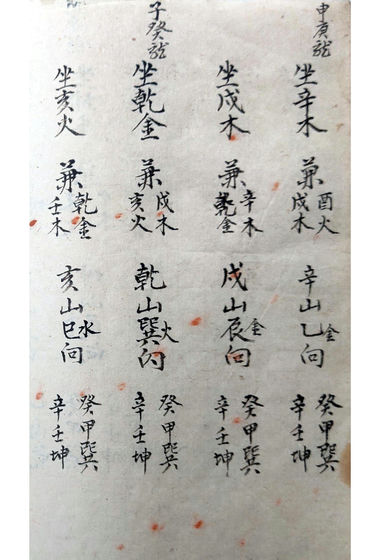 申庚龍
坐辛木
兼酉火戌木
辛山乙向金
癸甲巽
辛壬坤
坐戌木
兼辛木乾金
戌山辰向金
癸甲巽
辛壬坤
子癸龍
坐乾金
兼戌木亥火
乾山巽向火
癸甲巽
辛壬坤
坐亥火
兼乾金壬木
亥山巳向水
癸甲巽
辛壬坤